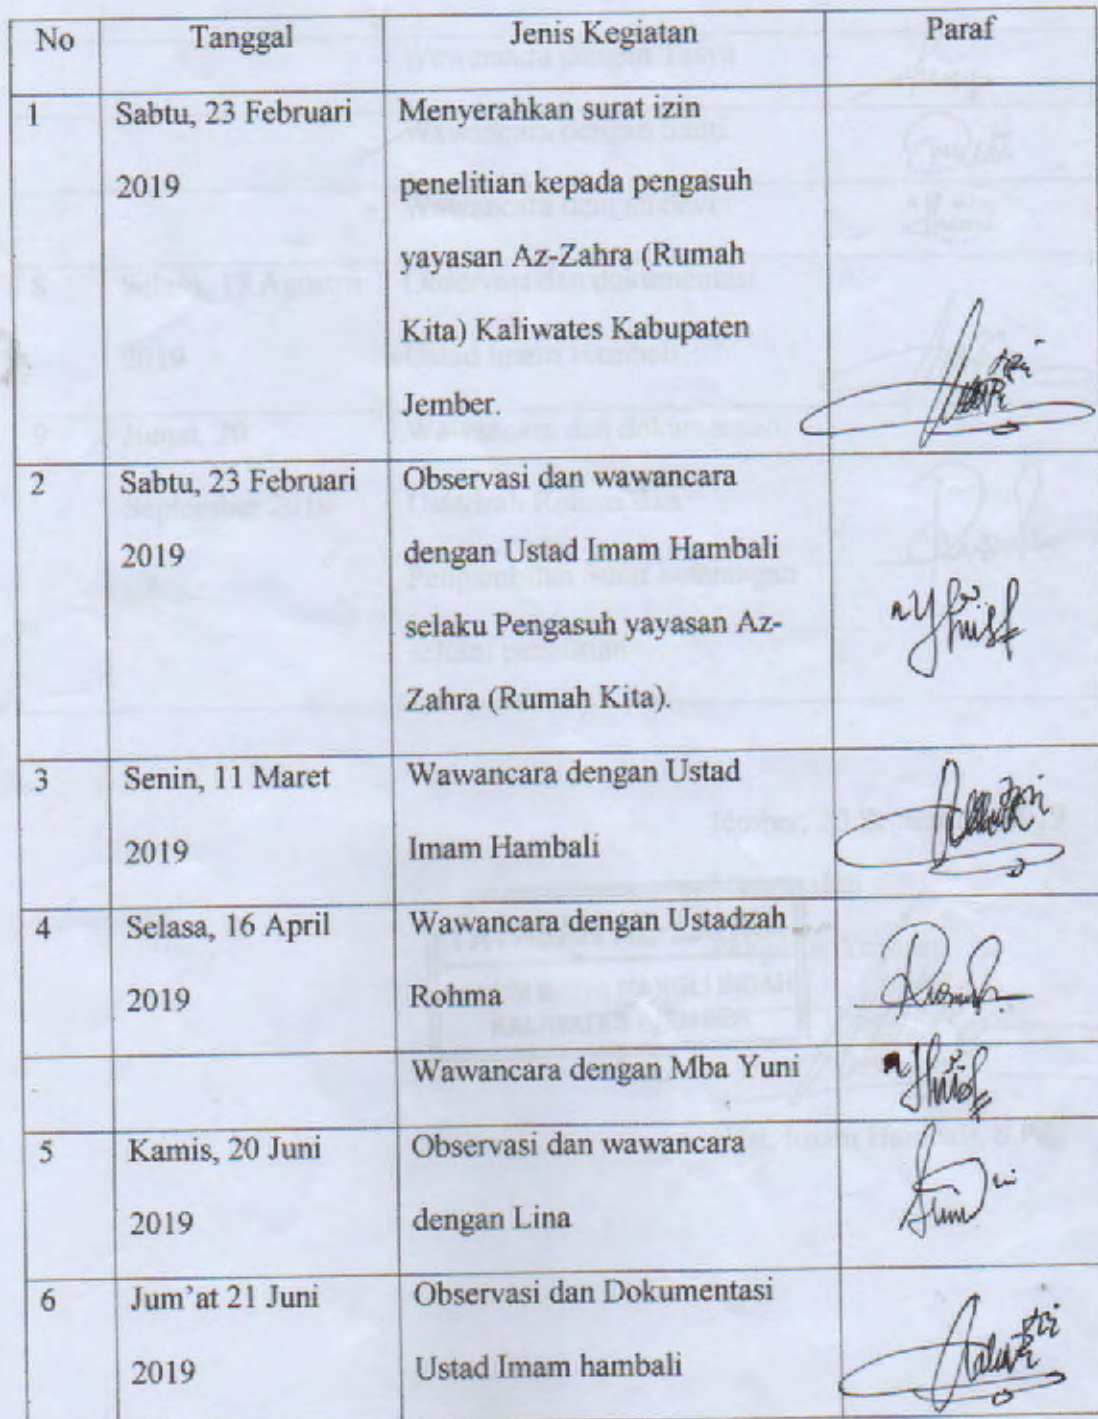 No Tanggal Jenis Kegiatan Paraf
1 Sabtu, 23 Februari Menyerahkan surat izin
2019 penelitian kepada pengasuh
yayasan Az-Zahra (Rumah
Kita) Kaliwates Kabupaten
Jember.
2 Sabtu, 23 Februari Observasi dan wawancara
2019 dengan Ustad Imam Hambali
selaku Pengasuh yayasan Az-
Zahra (Rumah Kita).
3 Senin, 11 Maret Wawancara dengan Ustad
2019 Imam Hambali
4 Selasa, 16 April Wawancara dengan Ustadzah
2019 Rohma
Wawancara dengan Mba Yuni
5 Kamis, 20 Juni Observasi dan wawancara
2019 dengan Lina
6 Jum'at 21 Juni Observasi dan Dokumentasi
2019 Ustad Imam hambali